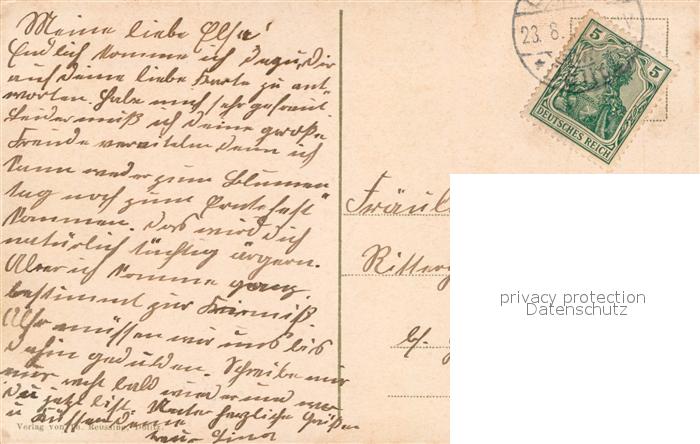 Meine liebe Elsa!
Endlich komme ich dazu, Dir
auf deine liebe Karte zu ant-
worten. Habe mich sehr gefreut.
Leider muß ich deine große
Freude vereiteln denn ich
kann weder zum Blumen-
tag noch zum Erntefest
kommen. Das wird dich
natürlich tüchtig ärgern.
Aber ich komme ganz
bestimmt zur Kirmiß.
Also müssen wir uns bis
dahin gedulden. Schreibe mir
nur recht bald wieder und wo
du jetzt bist. Unter herzliche Grüßen
u Küssen deine
Verlag von Reussing
23. 8.
5 5
DEUTSCHES REICH
Fräul
Ritterg
b/.
privacy protection
Datenschutz